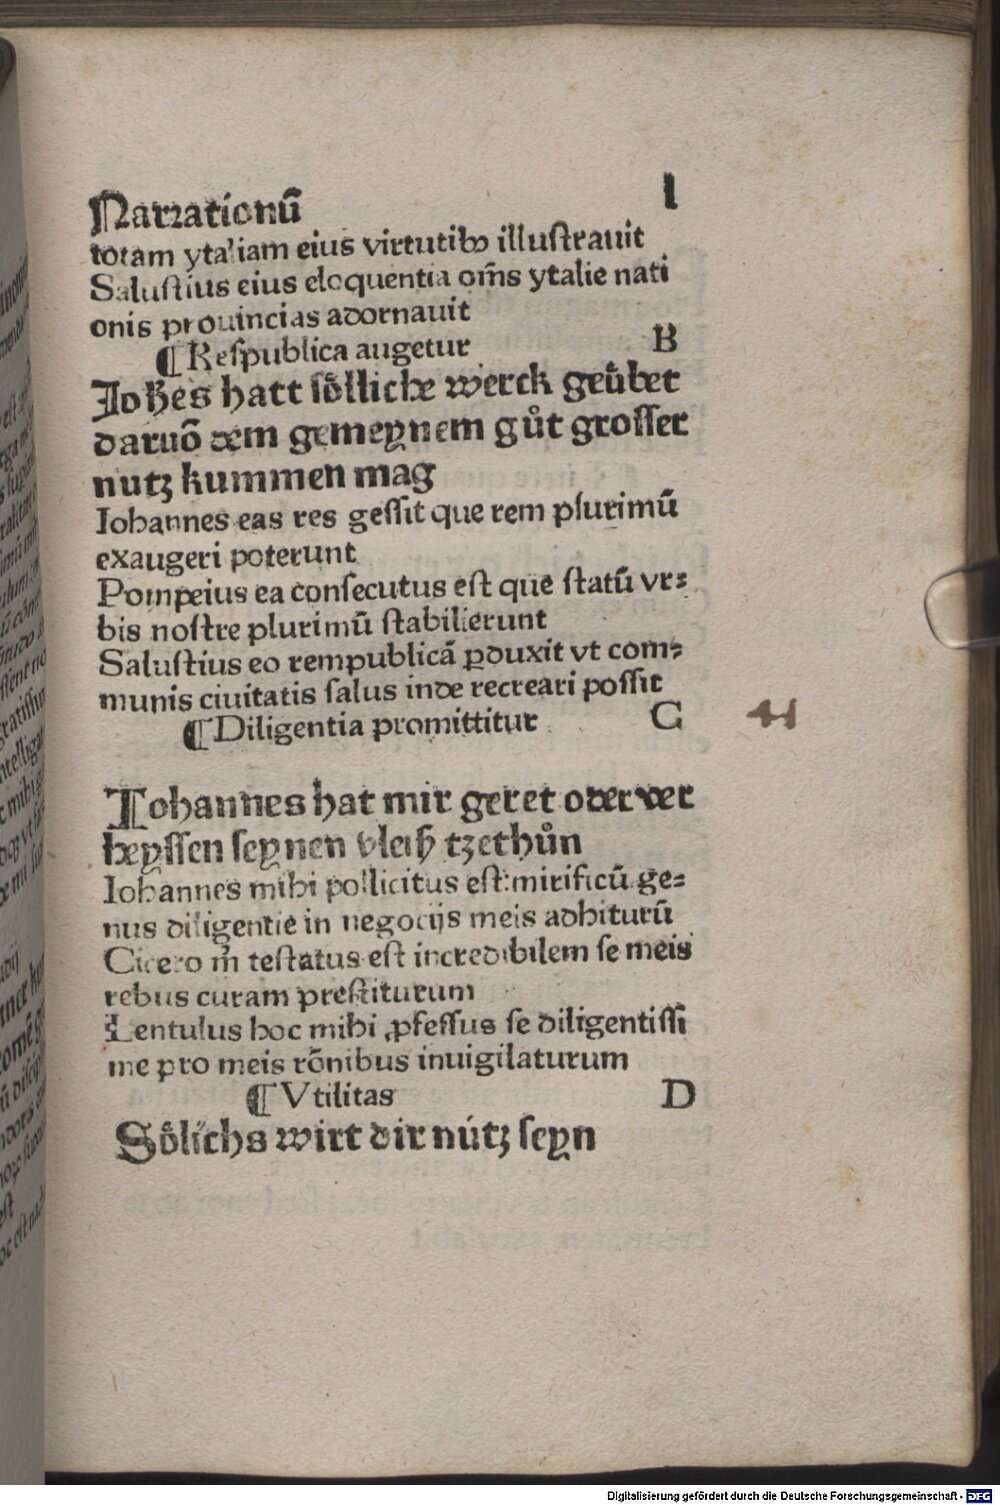 Narrationū I
totam ytaliam eius virtutibꝰ illuſtrauit
Saluſtius eius eloquentia om̄s ytalie nati
onis prouincias adornauit
¶ Reſpublica augetur B
Johēs hatt ſoͤlliche werck geuͤbet
daruō dem gemeynem guͦt groſſer
nutz kummen mag
Iohannes eas res geſſit que rem plurimū
exaugeri poterunt
Pompeius ea conſecutus eſt que ſtatū vr⸗
bis noſtre plurimū ſtabilierunt
Saluſtius eo rempublicā ꝑduxit vt com⸗
munis ciuitatis ſalus inde recreari poſſit
¶ Diligentia promittitur C
Iohannes hat mir geret oder ver
heyſſen ſeynen vleiß tzethuͦn
Iohannes mihi pollicitus eſt: mirificū ge⸗
nus diligentie in negocijs meis adhiturū
Cicero m̄ teſtatus eſt incredibilem ſe meis
rebus curam preſtiturum
Lentulus hoc mihi ꝓfeſſus ſe diligentiſſi
me pro meis rōnibus inuigilaturum
¶ Vtilitas D
Soͤlichs wirt dir nútz ſeyn
Digitalisierung gefördert durch die Deutsche Forschungsgemeinschaft - DFG